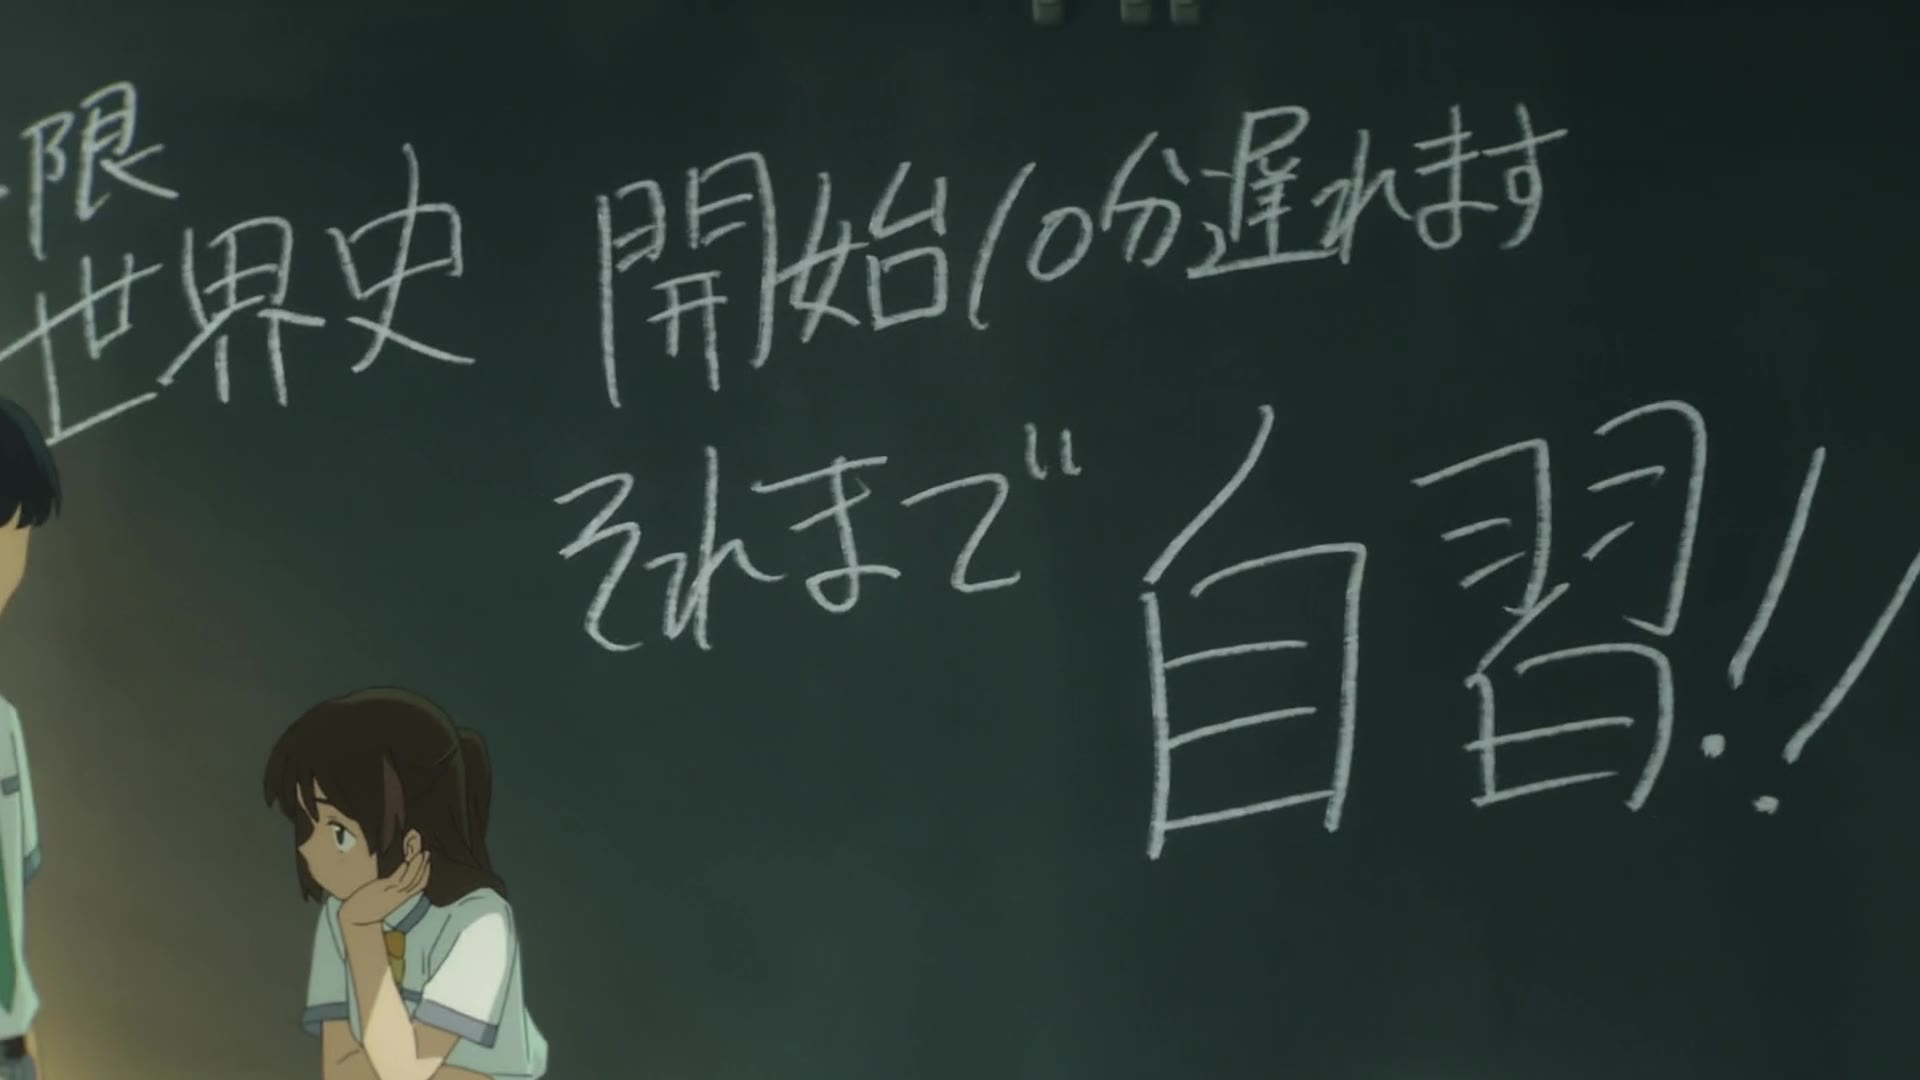 限
世界史 開始10分遅れます
それまで 自習!!